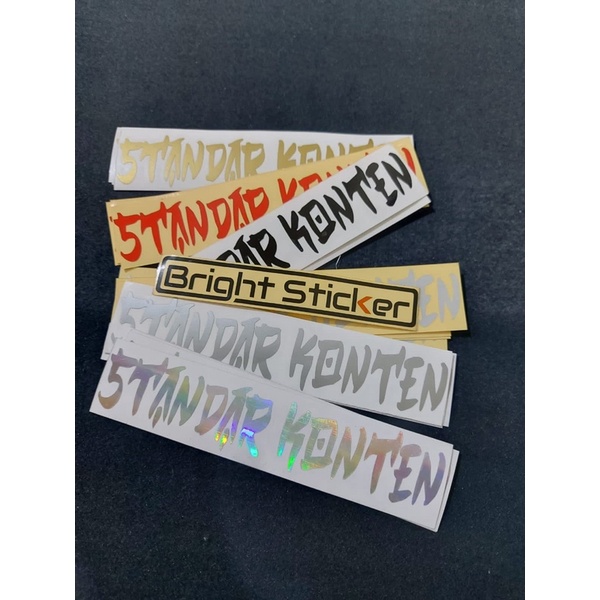 5TANDAR KONTEN
5TANDAR KONTEN
DAR KONTEN
Bright Sticker
5TANDAR KONTEN
5TANDAR KONTEN